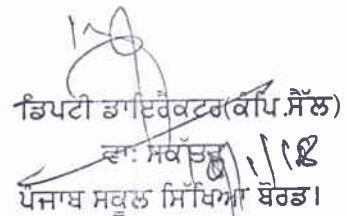 ਡਿਪਟੀ ਡਾਇਰੈਕਟਰ(ਕੰਪਿ.ਸੈੱਲ)
ਵਾ: ਸਕੱਤਰ
ਪੰਜਾਬ ਸਕੂਲ ਸਿੱਖਿਆ ਬੋਰਡ।